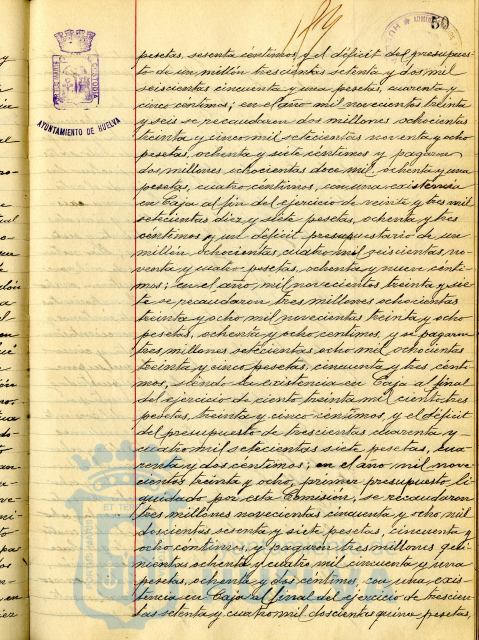 50
AYUNTAMIENTO DE HUELVA
pesetas, sesenta céntimos y el déficit del presupues-
to de un millón trescientas setenta y dos mil
seiscientas cincuenta y una pesetas, cuarenta y
cinco céntimos; en el año mil novecientos treinta
y seis se recaudaron dos millones ochocientas
treinta y cinco mil setecientas noventa y ocho
pesetas, ochenta y siete céntimos y pagaron
dos millones ochocientas doce mil ochenta y una
pesetas, cuatro céntimos, con una existencia
en Caja al fin del ejercicio de veinte y tres mil
setecientas diez y siete pesetas, ochenta y tres
céntimos y un déficit presupuestario de un
millón ochocientas cuatro mil seiscientas no-
venta y cuatro pesetas, ochenta y nueve cénti-
mos; en el año, mil novecientos treinta y sie-
te se recaudaron tres millones ochocientas
treinta y ocho mil novecientas treinta y ocho
pesetas, ochenta y ocho centimos, y se pagaron
tres millones setecientas ocho mil ochocientas
treinta y cinco pesetas, cincuenta y tres cénti-
mos, siendo la existencia en Caja al final
del ejercicio de ciento treinta mil ciento tres
pesetas, treinta y cinco céntimos, y el déficit
del presupuesto de trescientas cuarenta y
cuatro mil setecientas siete pesetas, cua-
renta y dos céntimos; en el año mil nove-
cientos treinta y ocho, primer presupuesto li-
quidado por esta Comisión, se recaudaron
tres millones novecientas cincuenta y ocho mil
doscientas sesenta y siete pesetas, cincuenta y
ocho centimos, y pagaron tres millones qui-
nientas ochenta y cuatro mil cincuenta y una
pesetas, ochenta y dos céntimos, con una exis-
tencia en Caja al final del ejercicio de trescien-
tas setenta y cuatro mil doscientas quince pesetas,